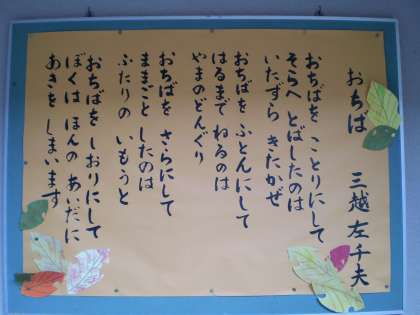 おちば
三越左千夫
おちばを ことりにして
そらへ とばしたのは
いたずら きたかぜ
おちばを ふとんにして
はるまで ねるのは
やまのどんぐり
おちばを さらにして
ままごと したのは
ふたりの いもうと
おちばを しおりにして
ぼくは ほんの あいだに
あきを しまいます